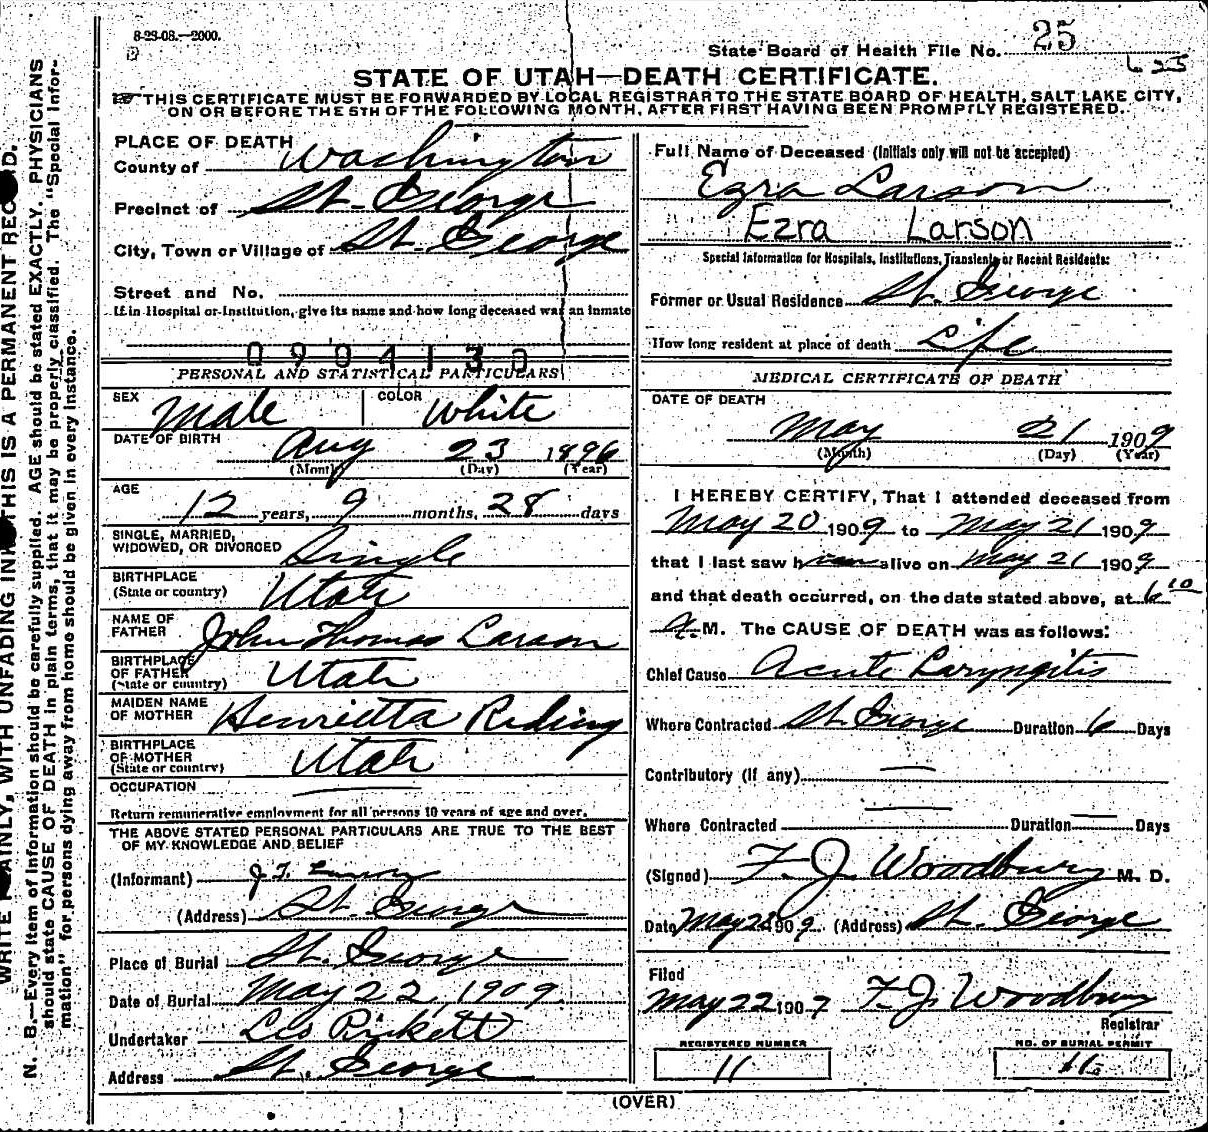 8-23-08.—2000.
State Board of Health File No. 25
625
STATE OF UTAH—DEATH CERTIFICATE.
THIS CERTIFICATE MUST BE FORWARDED BY LOCAL REGISTRAR TO THE STATE BOARD OF HEALTH, SALT LAKE CITY,
ON OR BEFORE THE 5TH OF THE FOLLOWING MONTH, AFTER FIRST HAVING BEEN PROMPTLY REGISTERED.
PLACE OF DEATH
County of Washington
Precinct of St. George
City, Town or Village of St. George
Street and No.
If in Hospital or Institution, give its name and how long deceased was an inmate
0904130
PERSONAL AND STATISTICAL PARTICULARS
SEX Male COLOR White
DATE OF BIRTH Aug 23 1896
(Month) (Day) (Year)
AGE
12 years, 9 months, 28 days
SINGLE, MARRIED,
WIDOWED, OR DIVORCED Single
BIRTHPLACE
(State or country) Utah
NAME OF
FATHER John Thomas Larson
BIRTHPLACE
OF FATHER
(State or country) Utah
MAIDEN NAME
OF MOTHER Henrietta Riding
BIRTHPLACE
OF MOTHER
(State or country) Utah
OCCUPATION
Return remunerative employment for all persons 10 years of age and over.
THE ABOVE STATED PERSONAL PARTICULARS ARE TRUE TO THE BEST
OF MY KNOWLEDGE AND BELIEF
(Informant) J. T.
(Address) St. George
Place of Burial St. George
Date of Burial May 22, 1909.
Undertaker Pickett
Address St. George
Full Name of Deceased (Initials only will not be accepted)
Ezra Larson
Ezra Larson
Special Information for Hospitals, Institutions, Transients or Recent Residents:
Former or Usual Residence St. George
How long resident at place of death Life
MEDICAL CERTIFICATE OF DEATH
DATE OF DEATH
May 21 1909
(Month) (Day) (Year)
I HEREBY CERTIFY, That I attended deceased from
May 20 1909 to May 21 1909
that I last saw him alive on May 21 1909
and that death occurred, on the date stated above, at 6 10
A M. The CAUSE OF DEATH was as follows:
Chief Cause Acute Laryngitis
Where Contracted St. George Duration 6 Days
Contributory (if any) —
Where Contracted — Duration — Days
(Signed) F. J. Woodbury M. D.
Date May 1909. (Address) St. George
Filed
May 22 1909 F. J. Woodbury
Registrar
REGISTERED NUMBER
11
NO. OF BURIAL PERMIT
(OVER)
WRITE PLAINLY, WITH UNFADING INK—THIS IS A PERMANENT RECORD.
N. B.—Every item of information should be carefully supplied. AGE should be stated EXACTLY. PHYSICIANS
should state CAUSE OF DEATH in plain terms, that it may be properly classified. The "Special Infor-
mation" for persons dying away from home should be given in every instance.